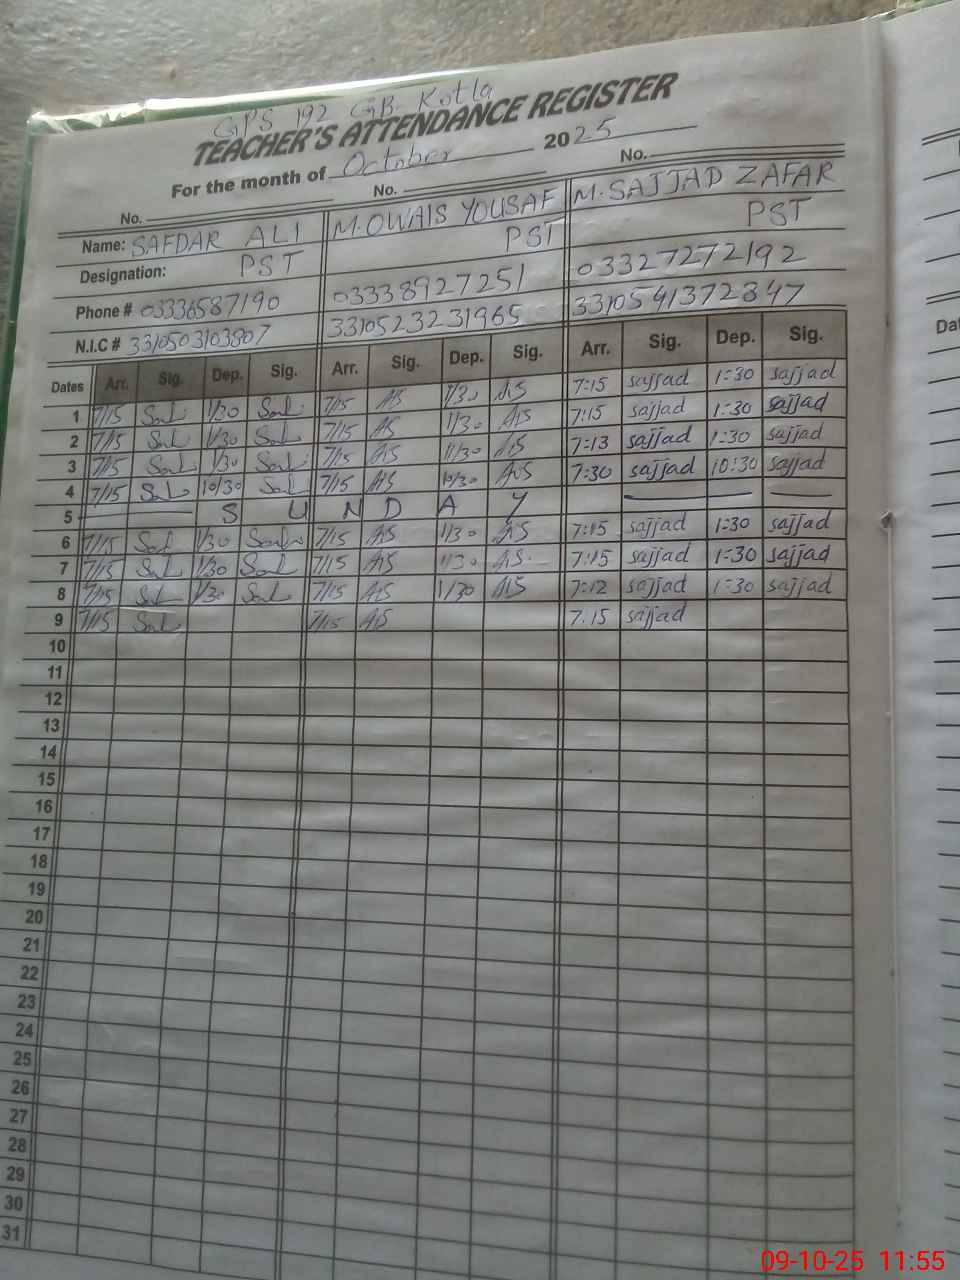 GPS 192 GB Kotla
TEACHER'S ATTENDANCE REGISTER
For the month of October 2025
No. No. No.
Name: SAFDAR ALI M. OWAIS YOUSAF M. SAJJAD ZAFAR
Designation: PST PST PST
Phone # 03336587190 03338927251 03327272192
N.I.C # 3310503103807 3310523231965 3310541372847
Dates Arr. Sig. Dep. Sig. Arr. Sig. Dep. Sig. Arr. Sig. Dep. Sig.
1 7/15 1/30 7/15 AiS 1/30 AiS 7:15 sajjad 1:30 sajjad
2 7/15 1/30 7/15 AiS 1/30 AiS 7:15 sajjad 1:30 sajjad
3 7/15 1/30 7/15 AiS 11/30 AiS 7:13 sajjad 1:30 sajjad
4 7/15 10/30 7/15 AiS 10/30 AiS 7:30 sajjad 10:30 sajjad
5 S U N D A Y
6 7/15 1/30 7/15 AiS 1/30 AiS 7:15 sajjad 1:30 sajjad
7 7/15 1/30 7/15 AiS 1/30 AiS 7:15 sajjad 1:30 sajjad
8 7/15 1/30 7/15 AiS 1/30 AiS 7:12 sajjad 1:30 sajjad
9 7/15 7/15 AiS 7.15 sajjad
10
11
12
13
14
15
16
17
18
19
20
21
22
23
24
25
26
27
28
29
30
31
09-10-25 11:55